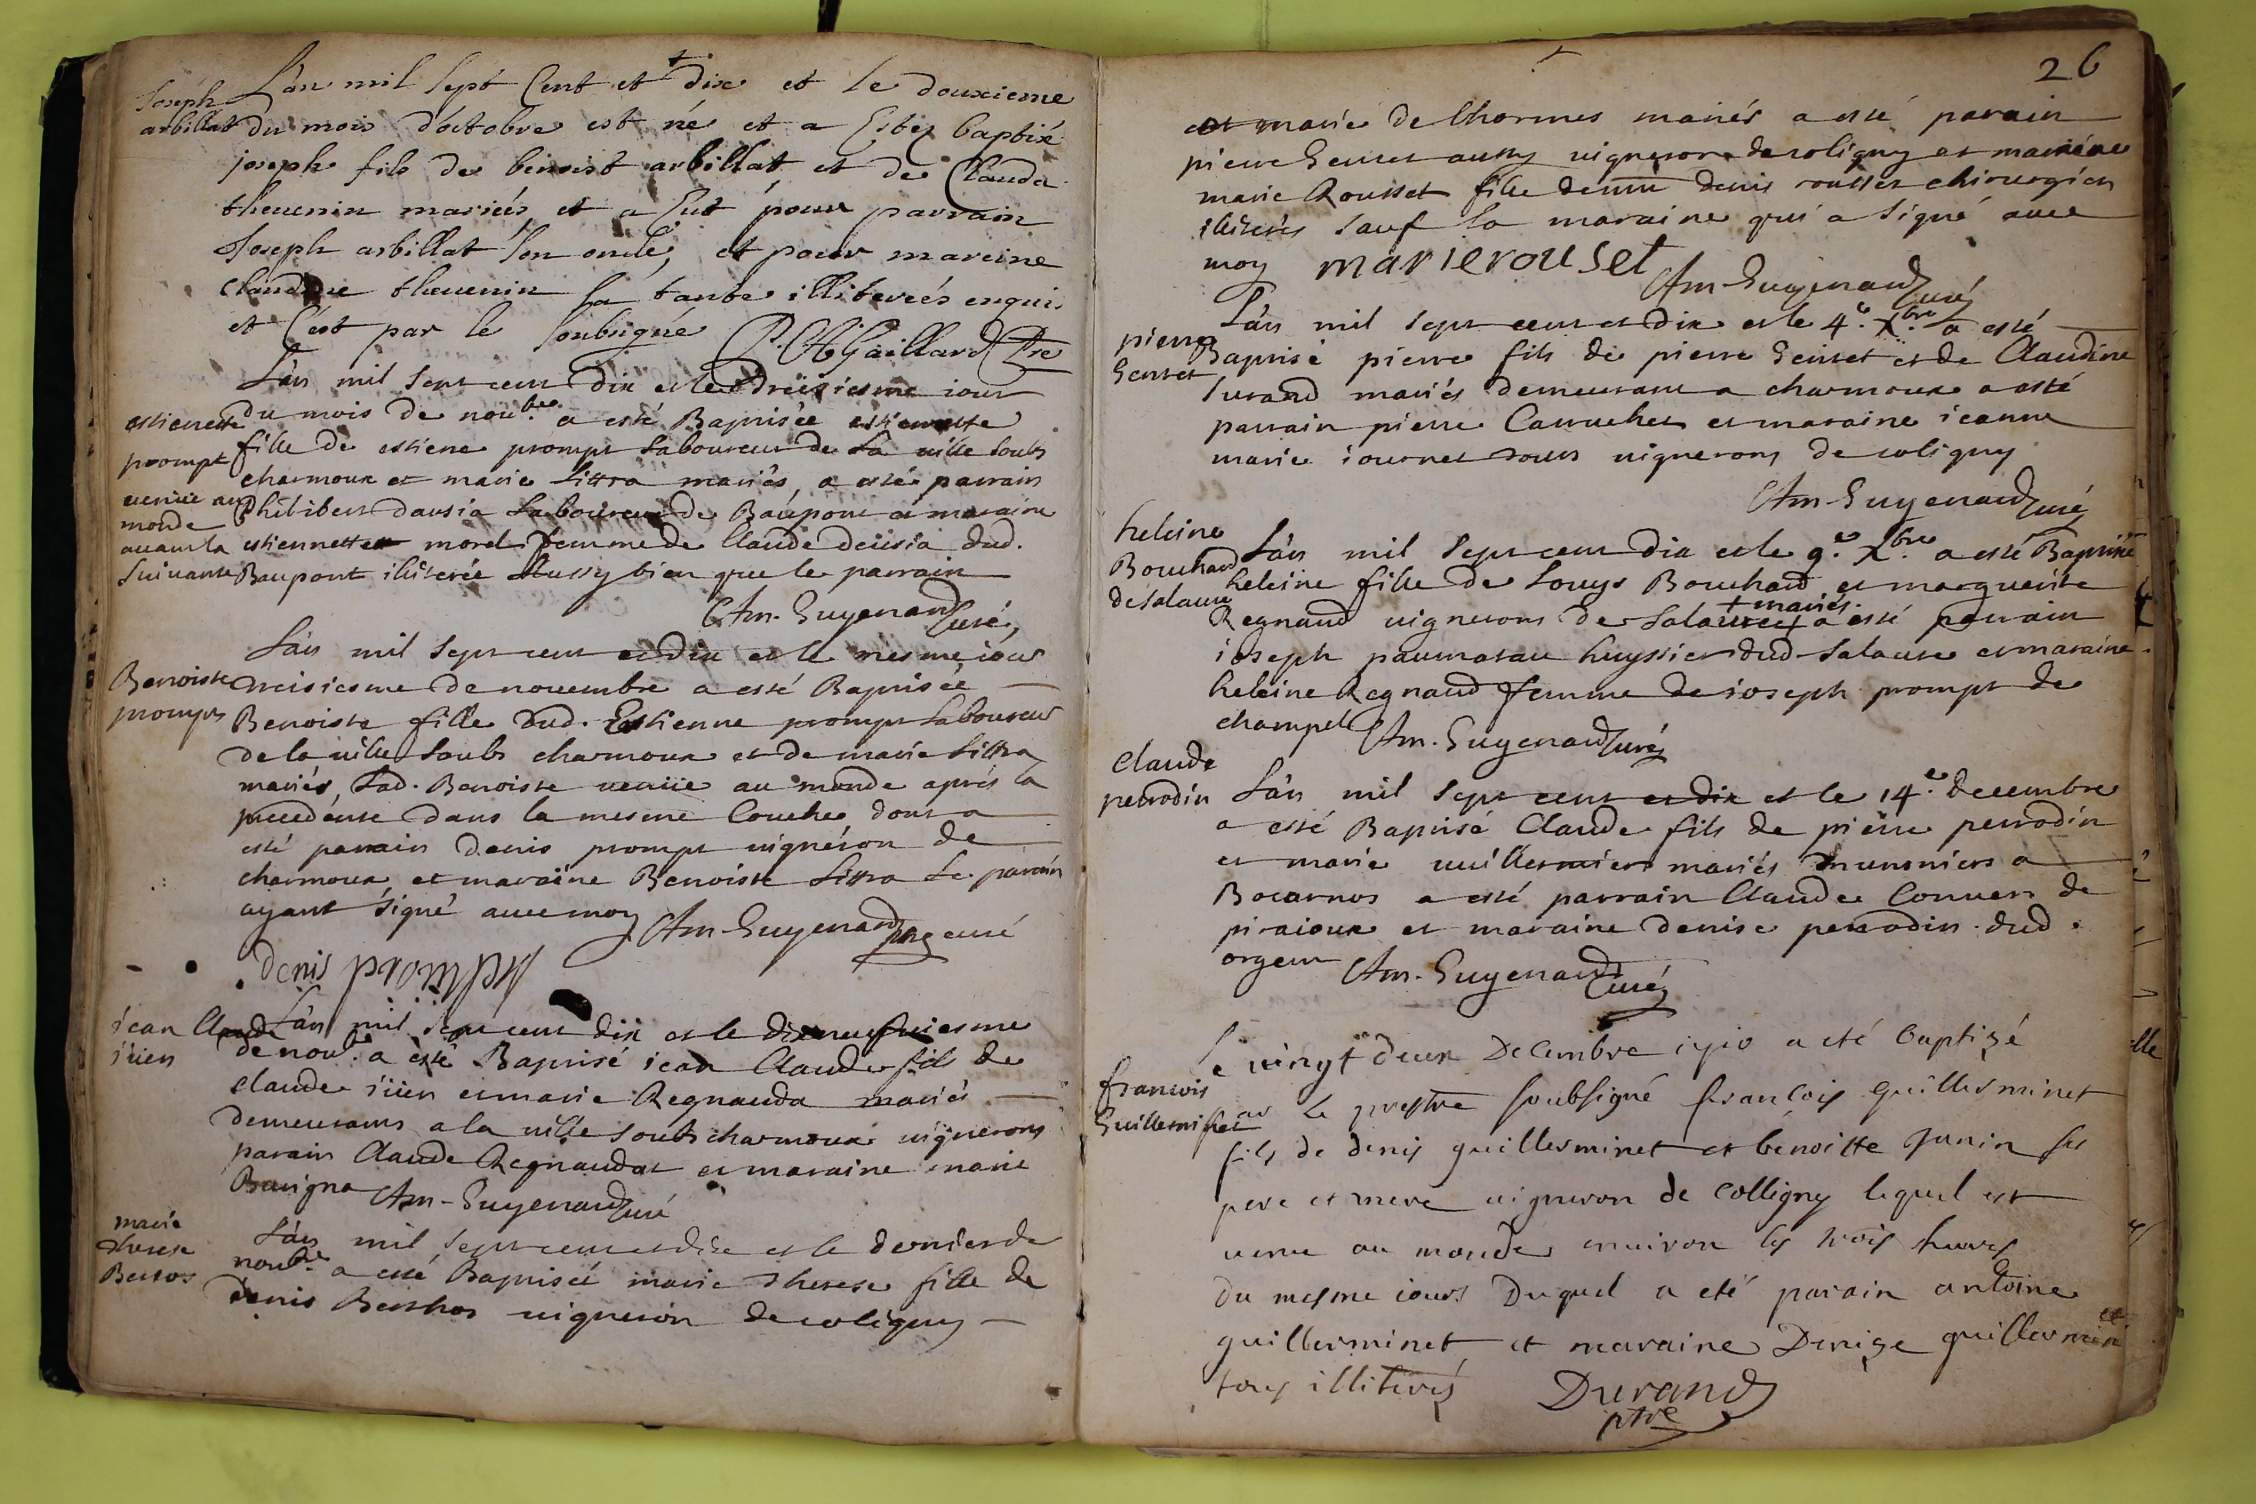 Joseph
arbillat
L'an mil sept Cent et dix et le douxieme
du mois d'octobre est né et a Estez baptixé
joseph fils de benoist arbillat et de Clauda
theuenin mariéés et a Eut pour parrain
Joseph arbillat son oncle, et pour mareine
claudine theuenin sa tante illitereés enquis
et C'est par le soubsigné Gaillard Pre
estienette
prompt
venüe au
monde
auant la
suivante
L'an mil sept cent dix et le treisiesme iour
du mois de noubre a esté Baptisée estiennette
fille de estiene prompt laboureur de la uille soubs
charmoux et marie littra mariés, a esté parrain
philibert dausia laboureur de Baupont et maraine
estiennette morel femme de Claude deüsia dud.
Baupont iliterée aussy bien que le parrain
Am. Guyenard curé
Benoiste
prompt
L'an mil sept cent et dix et le mesme iour
treisiesme de nouembre a esté Baptisée
Benoiste fille dud. Estienne prompt laboureur
de la uille soubs charmoux et de marie littra
mariés, lad. Benoiste venüe au monde aprés la
precedente dans la mesme Couche dont a
esté parrain denis prompt uigneron de
charmoux et maraine Benoiste littra le parrain
ayant signé auec moy Am Guyenard curé
denis
iean Claude
iüen
L'an mil sept cent dix et le dixneufuiesme
de noubre a esté Baptisé iean Claude fils de
claude iüen et marie Regnauda mariés
demeurants a la uille soubs charmoux uignerons
parain Claude Regnaudat et maraine marie
Bauigna Am-Guyenard curé
marie
therese
Bertos
L'an mil sept cent et dix et le dernier de
noubre a esté Baptisée marie therese fille de
denis Berthos uigneron de coligny
26
et marie de lhormes mariés a esté parain
pierre Genset aussy uigneron de coligny et maraine
marie Rousset fille de denis rousset chirurgien
iliterés sauf la maraine qui a signé auec
moy marierouset
Am-Guyenard curé
pierre
Genset
L'an mil sept cent et dix et le 4e. Xbre a esté
Baptisé pierre fils de pierre Genset et de Claudine
Iurand mariés demeurant a charmoux a esté
parrain pierre Carruchet et maraine ieanne
marie iournet tous uignerons de coligny
Am-Guyenard curé
heleine
Bouchard
de salaure
L'an mil sept cent dix et le 9e. Xbre. a esté Baptisé
heleine fille de Louys Bouchard et marguerite
Regnaud uignerons de salaure + mariés a esté parrain
ioseph paumatau huyssier dud. salaure et maraine
heleine Regnaud femme de ioseph prompt de
champel Am. Guyenard curé
claude
perrodin
L'an mil sept cent et dix et le 14e. decembre
a esté Baptisé Claude fils de pierre perrodin
et marie uuillermier mariés munsniers a
Bocarnos a esté parrain Claude Conuers de
piraioux et maraine denise perrodin dud.
orgeur Am. Guyenard curé
francois
Guillerminet
le vingt deux Decembre 1710 a eté baptizé
par le prestre soubsigné françois guillerminet
fils de denis guillerminet et benoitte Junin ses
pere et mere uigneron de colligny lequel est
uenu au monde enuiron les trois heures
du mesme iours Duquel a eté parain antoine
guillerminet et maraine Denize guillerminet
tous illiterés Durand
ptre